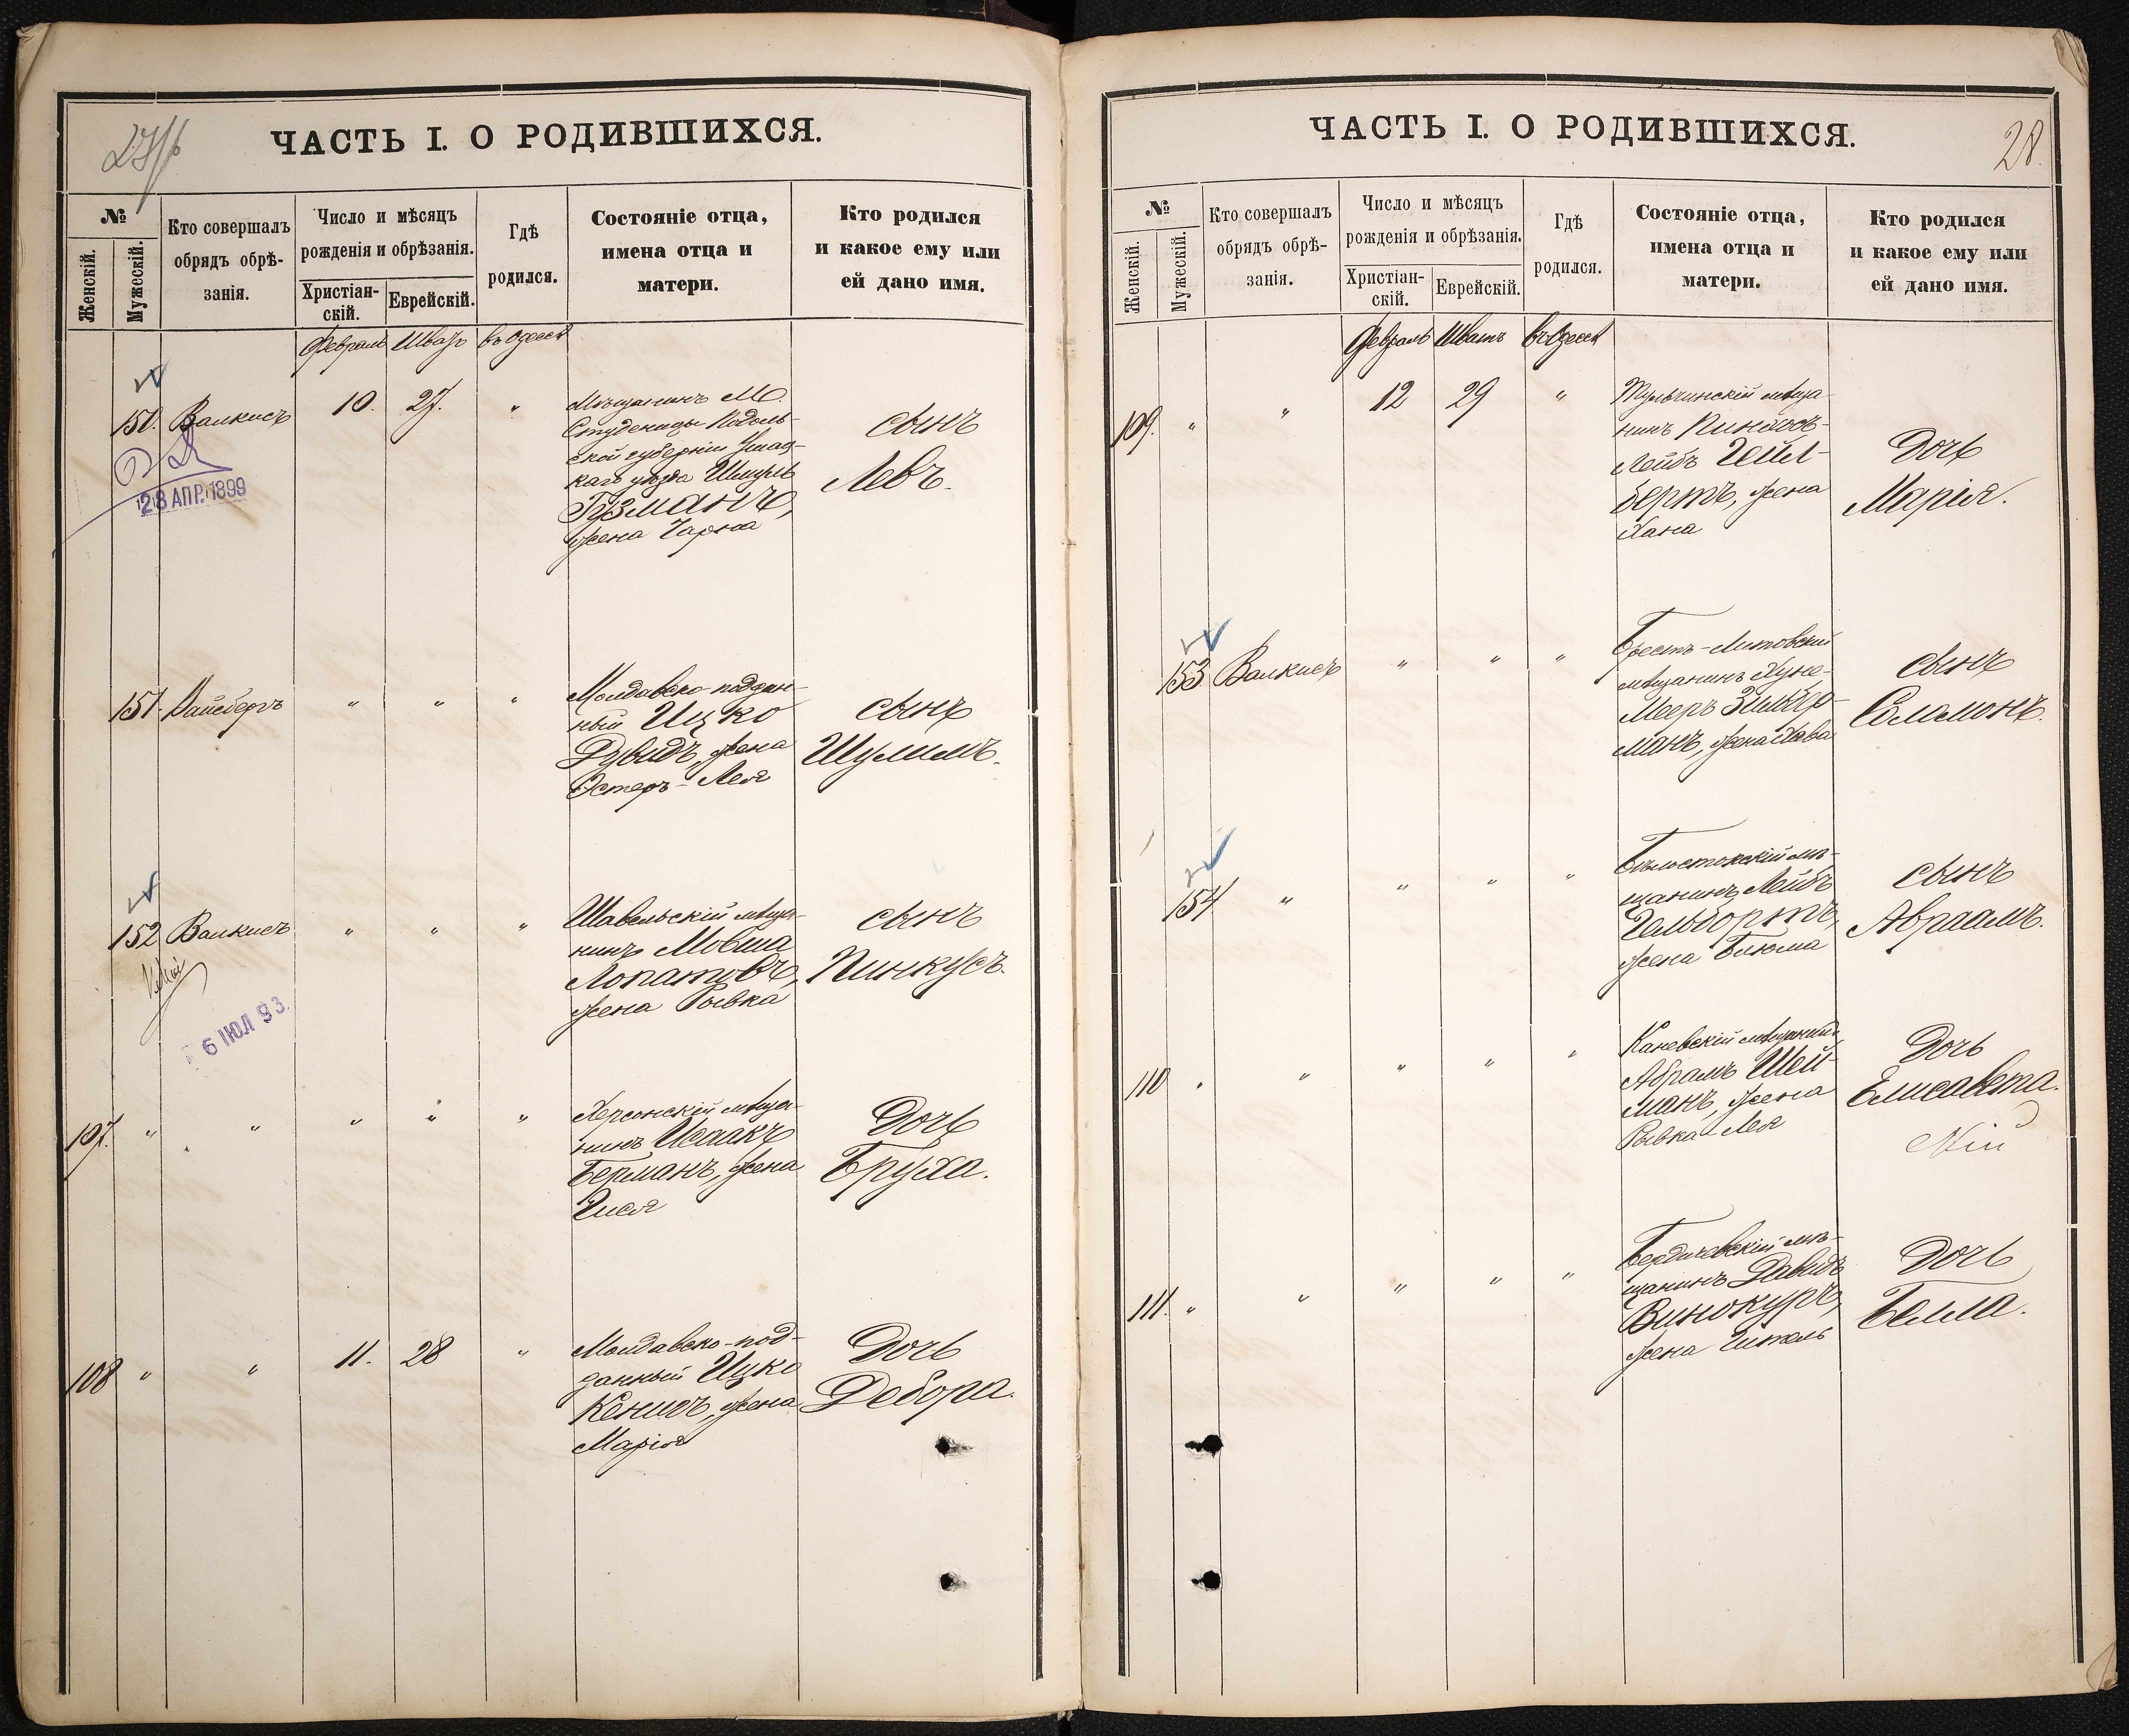 27/об
ЧАСТЬ I. О РОДИВШИХСЯ.
№
Женскій.
Мужескій.
Кто совершалъ
обрядъ обрѣ-
занія.
Число и мѣсяцъ
рожденія и обрѣзанія.
Христіан-
скій.
Еврейскій.
Гдѣ
родился.
Состояніе отца,
имена отца и
матери.
Кто родился
и какое ему или
ей дано имя.
Февраль Шватъ въ Одессѣ
150. Валкисъ 10. 27. "
Мѣщанинъ М.
Студеницы Подоль-
ской губерніи Ушиц-
каго уѣзда Шмуль
Гузманъ,
жена Чарна
сынъ
Левъ.
28 АПР. 1899
151. Вайсбергъ " " "
Молдавско-поддан-
ный Ицко
Дувидъ, жена
Эстеръ-Лея
сынъ
Шулимъ.
152 Валкисъ " " "
Шавельскій мѣща-
нинъ Мовша
Лопатовъ,
жена Рывка
сынъ
Пинкусъ.
6 ІЮЛ 93.
107. " " " " "
Херсонскій мѣща-
нинъ Исаакъ
Берманъ, жена
Гися
Дочь
Бруха.
108 " " 11. 28 "
Молдавско-под-
данный Ицко
Кенигъ, жена
Марія
Дочь
Дебора.
28.
ЧАСТЬ I. О РОДИВШИХСЯ.
№
Женскій.
Мужескій.
Кто совершалъ
обрядъ обрѣ-
занія.
Число и мѣсяцъ
рожденія и обрѣзанія.
Христіан-
скій.
Еврейскій.
Гдѣ
родился.
Состояніе отца,
имена отца и
матери.
Кто родился
и какое ему или
ей дано имя.
Февраль Шватъ въ Одессѣ
109. " " 12 29 "
Тульчинскій мѣща-
нинъ Пинхосъ-
Лейбъ Гейл-
бертъ, жена
Хана
Дочь
Марія.
153 Валкисъ " " "
Брестъ-Литовскій
мѣщанинъ Хуна-
Мееръ Зильбер-
манъ, жена Хава
сынъ
Соломонъ.
154 " " " "
Бѣлостокскій мѣ-
щанинъ Лейбъ
Гельбортъ,
жена Блюма
сынъ
Авраамъ.
110 " " " " "
Каневскій мѣщанинъ
Абрамъ Шей-
манъ, жена
Рывка-Лея
Дочь
Елисавета.
111. " " " " "
Бердичевскій мѣ-
щанинъ Давидъ
Винокуръ,
жена Гитель
Дочь
Белла.